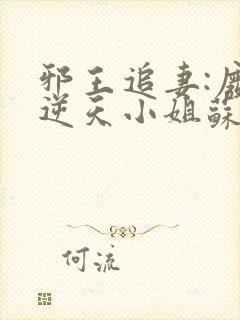 邪王追妻:
逆天小姐蘇
何流